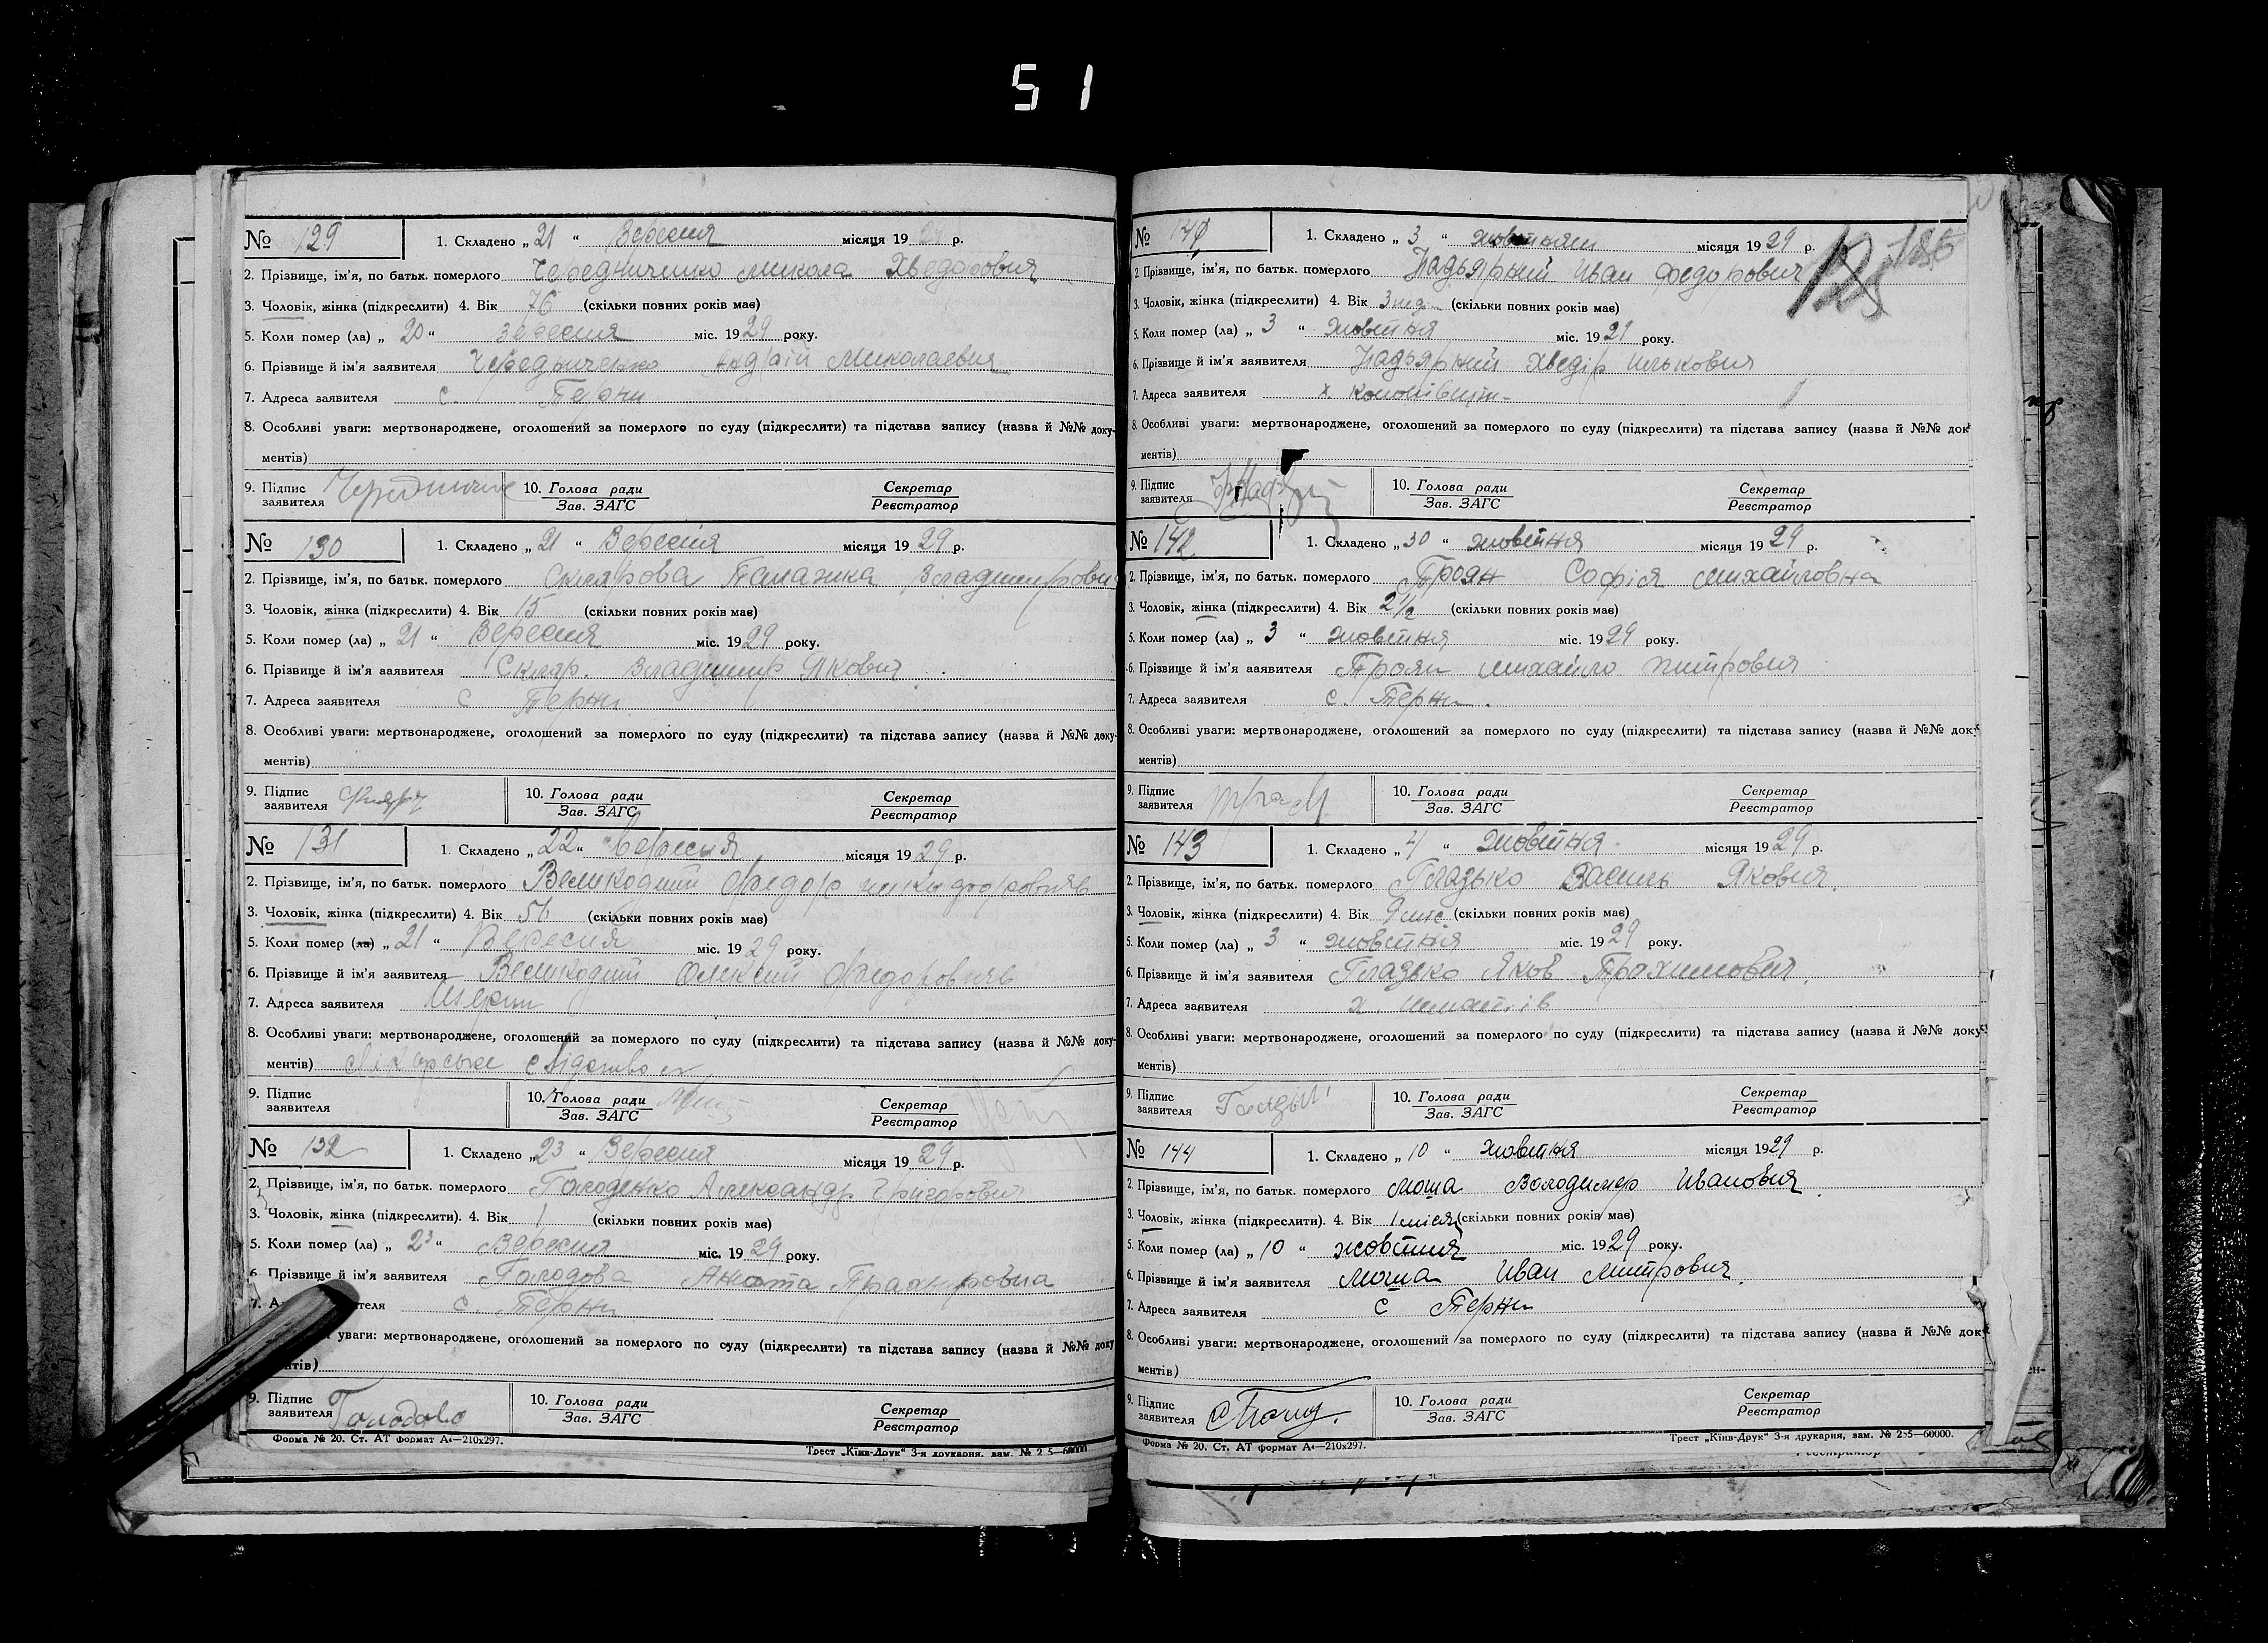 51
№ 129 1. Складено „ 21 “ Вересня місяця 1929 р.
2. Прізвище, ім’я, по батьк. померлого Чередниченко Микола Хведорович
3. Чоловік, жінка (підкреслити) 4. Вік 76 (скільки повних років має)
5. Коли помер (ла) „ 20 “ Вересня міс. 1929 року.
6. Прізвище й ім’я заявителя Чередниченко Андрій Миколаевич
7. Адреса заявителя с. Терни
8. Особливі уваги: мертвонароджене, оголошений за померлого по суду (підкреслити) та підстава запису (назва й №№ доку-
ментів)
9. Підпис заявителя 10. Голова ради Зав. ЗАГС Секретар Реєстратор
№ 130 1. Складено „ 21 “ Вересня місяця 1929 р.
2. Прізвище, ім’я, по батьк. померлого Склярова Палажка
3. Чоловік, жінка (підкреслити) 4. Вік 15 (скільки повних років має)
5. Коли помер (ла) „ 21 “ Вересня міс. 1929 року.
6. Прізвище й ім’я заявителя Скляр. Владимир Якович
7. Адреса заявителя с Терни.
8. Особливі уваги: мертвонароджене, оголошений за померлого по суду (підкреслити) та підстава запису (назва й №№ доку-
ментів)
9. Підпис заявителя 10. Голова ради Зав. ЗАГС Секретар Реєстратор
№ 131 1. Складено „ 22 “ Вересня місяця 1929 р.
2. Прізвище, ім’я, по батьк. померлого Великодний Федор
3. Чоловік, жінка (підкреслити) 4. Вік 56 (скільки повних років має)
5. Коли помер (ла) „ 21 “ Вересня міс. 1929 року.
6. Прізвище й ім’я заявителя Великодний Олексій Федоровичь
7. Адреса заявителя
8. Особливі уваги: мертвонароджене, оголошений за померлого по суду (підкреслити) та підстава запису (назва й №№ доку-
ментів) Лікарське
9. Підпис заявителя 10. Голова ради Зав. ЗАГС Секретар Реєстратор
№ 132 1. Складено „ 23 “ Вересня місяця 1929 р.
2. Прізвище, ім’я, по батьк. померлого Александр Григорович
3. Чоловік, жінка (підкреслити). 4. Вік 1 (скільки повних років має)
5. Коли помер (ла) „ 23 “ Вересня міс. 1929 року.
6. Прізвище й ім’я заявителя Голодова
с. Терни
уваги: мертвонароджене, оголошений за померлого по суду (підкреслити) та підстава запису (назва й №№ доку
9. Підпис заявителя Голодова 10. Голова ради Зав. ЗАГС Секретар Реєстратор
Форма № 20. Ст. АТ формат А4—210х297. Трест „Київ-Друк“ 3-я друкарня, зам. № 2 5—60000
125 186
№ 1. Складено „ 3 “ місяця 1929 р.
2. Прізвище, ім’я, по батьк. померлого Надьярний Иван Федорович
3. Чоловік, жінка (підкреслити) 4. Вік 3 нед. (скільки повних років має)
5. Коли помер (ла) „ 3 “ жовтня міс. 1929 року.
6. Прізвище й ім’я заявителя Надьярний Хведір Илькович
7. Адреса заявителя х
8. Особливі уваги: мертвонароджене, оголошений за померлого по суду (підкреслити) та підстава запису (назва й №№ док
ментів)
9. Підпис заявителя 10. Голова ради Зав. ЗАГС Секретар Реєстратор
№ 142 1. Складено „ 30 “ жовтня місяця 1929 р.
2. Прізвище, ім’я, по батьк. померлого Троян Софія Михайловна
3. Чоловік, жінка (підкреслити) 4. Вік 2 1/2 (скільки повних років має)
5. Коли помер (ла) „ 3 “ жовтня міс. 1929 року.
6. Прізвище й ім’я заявителя Троян Михайло
7. Адреса заявителя с. Терни.
8. Особливі уваги: мертвонароджене, оголошений за померлого по суду (підкреслити) та підстава запису (назва й №№ доку
ментів)
9. Підпис заявителя 10. Голова ради Зав. ЗАГС Секретар Реєстратор
№ 143 1. Складено „ 4 “ жовтня місяця 1929 р.
2. Прізвище, ім’я, по батьк. померлого Глазько Василь Якович.
3. Чоловік, жінка (підкреслити) 4. Вік 9 міс (скільки повних років має)
5. Коли помер (ла) „ 3 “ жовтня міс. 1929 року.
6. Прізвище й ім’я заявителя Глазько Яков Трохимович.
7. Адреса заявителя х.
8. Особливі уваги: мертвонароджене, оголошений за померлого по суду (підкреслити) та підстава запису (назва й №№ доку
ментів)
9. Підпис заявителя 10. Голова ради Зав. ЗАГС Секретар Реєстратор
№ 144 1. Складено „ 10 “ жовтня місяця 1929 р.
2. Прізвище, ім’я, по батьк. померлого Володимер Иванович.
3. Чоловік, жінка (підкреслити). 4. Вік 1 місяц (скільки повних років має)
5. Коли помер (ла) „ 10 “ жовтня міс. 1929 року.
6. Прізвище й ім’я заявителя Иван Митрович.
7. Адреса заявителя с Терни
8. Особливі уваги: мертвонароджене, оголошений за померлого по суду (підкреслити) та підстава запису (назва й №№ док
ментів)
9. Підпис заявителя 10. Голова ради Зав. ЗАГС Секретар Реєстратор
Форма № 20. Ст. АТ формат А4—210х297. Трест „Київ-Друк“ 3-я друкарня, зам. № 2 5—60000.